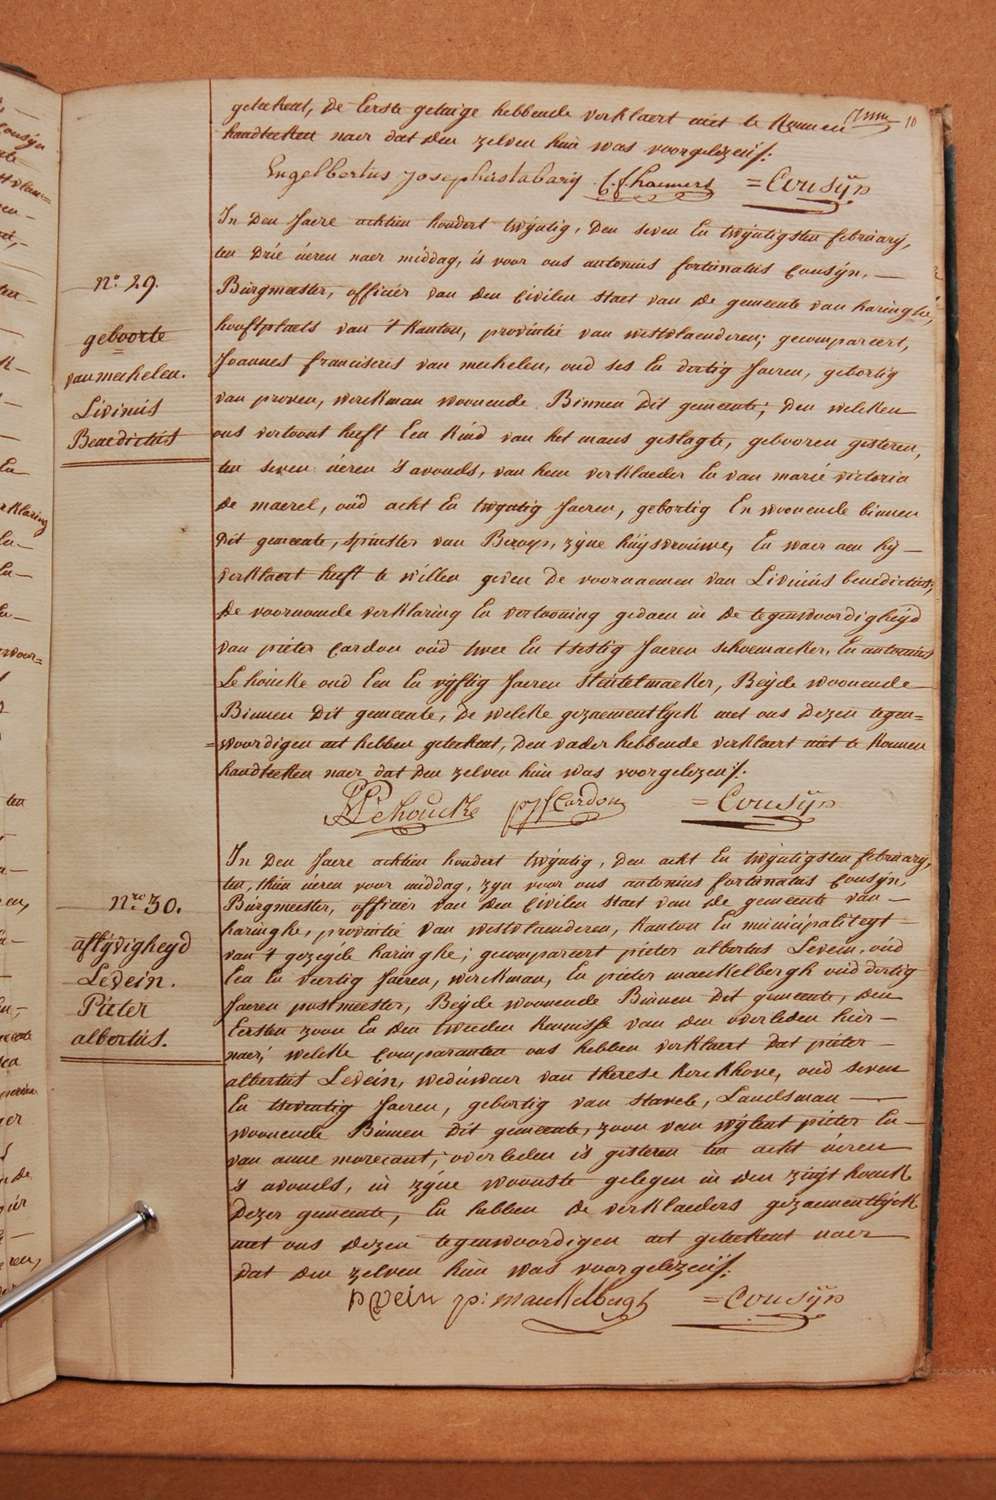 geteekent, de Eerste getuige hebbende verklaert niet te konnen
handteeken naer dat den zelven hun was voorgelezen ./.
10
Engelbertus Josephus = Cousÿn
In den Jaere achtien hondert twÿntig, den seven En twÿntigsten februarÿ,
ten drÿe ueren naer middag, is voor ons antonius fortunatus Cousÿn, —
Burgmeester, officier van den Civilen staet van de gemeente van haringhe,
hooftplaets van 't kanton, provintie van westvlaenderen; gecompareert,
Joannes franciscus van mechelen, oud ses En dertig Jaeren, gebortig
van proven, werckman woonende Binnen dit gemeente; den welcken
ons vertoont heeft Een kind van het mans geslagte, gebooren gisteren,
ten seven ueren 's avonds, van hem verklaeder En van marie victoria
de maerel, oud acht En twÿntig Jaeren, gebortig En woonende binnen
dit gemeente, spinster van Beroep, zÿne huÿsvrouwe, En waer aen hÿ —
verklaert heeft te willen geven de voornaemen van Livinus benedictus;
de voornoemde verklaring En vertooning gedaen in de tegenwoordigheÿd
van pieter Cardon oud twee En tsestig Jaeren schoemaeker, En antonius
Lehoucke oud Een En vÿftig Jaeren Steutelmaeker, Beÿde woonende
Binnen dit gemeente, de welke gezaementlÿck met ons dezen tegen=
=woordigen act hebben geteekent, den vader hebbende verklaert niet te konnen
handteeken naer dat den zelven hun was voorgelezen ./.
Lehoucke pjf Cardon = Cousÿn
n.º 29.
geboorte
van mechelen.
Livinus
Benedictus
In den Jaere achtien hondert twÿntig, den acht En twÿntigsten februarÿ,
ten thien ueren voor middag, zyn voor ons antonius fortunatus Cousÿn,
Burgmeester, officier van den Civilen staet van de gemeente van —
haringhe, provintie van westvlaenderen, Kanton En municipaliteÿt —
van 't gezegde haringhe; gecompareert pieter albertus Levein, oud
Een En veertig Jaeren, werckman, En pieter maeckelbergh oud dertig
Jaeren postmeester, Beÿde woonende Binnen dit gemeente, den
Eersten zoon En den tweeden kennisse van den overleden hier —
naer; welcke Comparanten ons hebben verklaert dat pieter —
albertus Levein, weduwaer van therese KercKhove, oud seven
En tseventig Jaeren, gebortig van Stavele, Landsman —
woonende Binnen dit gemeente, zoon van wÿlent pieter En —
van anne morecant; overleden is gisteren ten acht ueren
's avonds, in zÿne woonste gelegen in den zuÿt houck
dezer gemeente, En hebben de verklaeders gezaementlÿck
met ons dezen tegenwoordigen act geteekent naer —
dat den zelven hun was voorgelezen ./.
pvein p: Maeckelbergh = Cousÿn
n.ro 30.
aflÿvigheÿd
Levein.
Pieter
albertus.